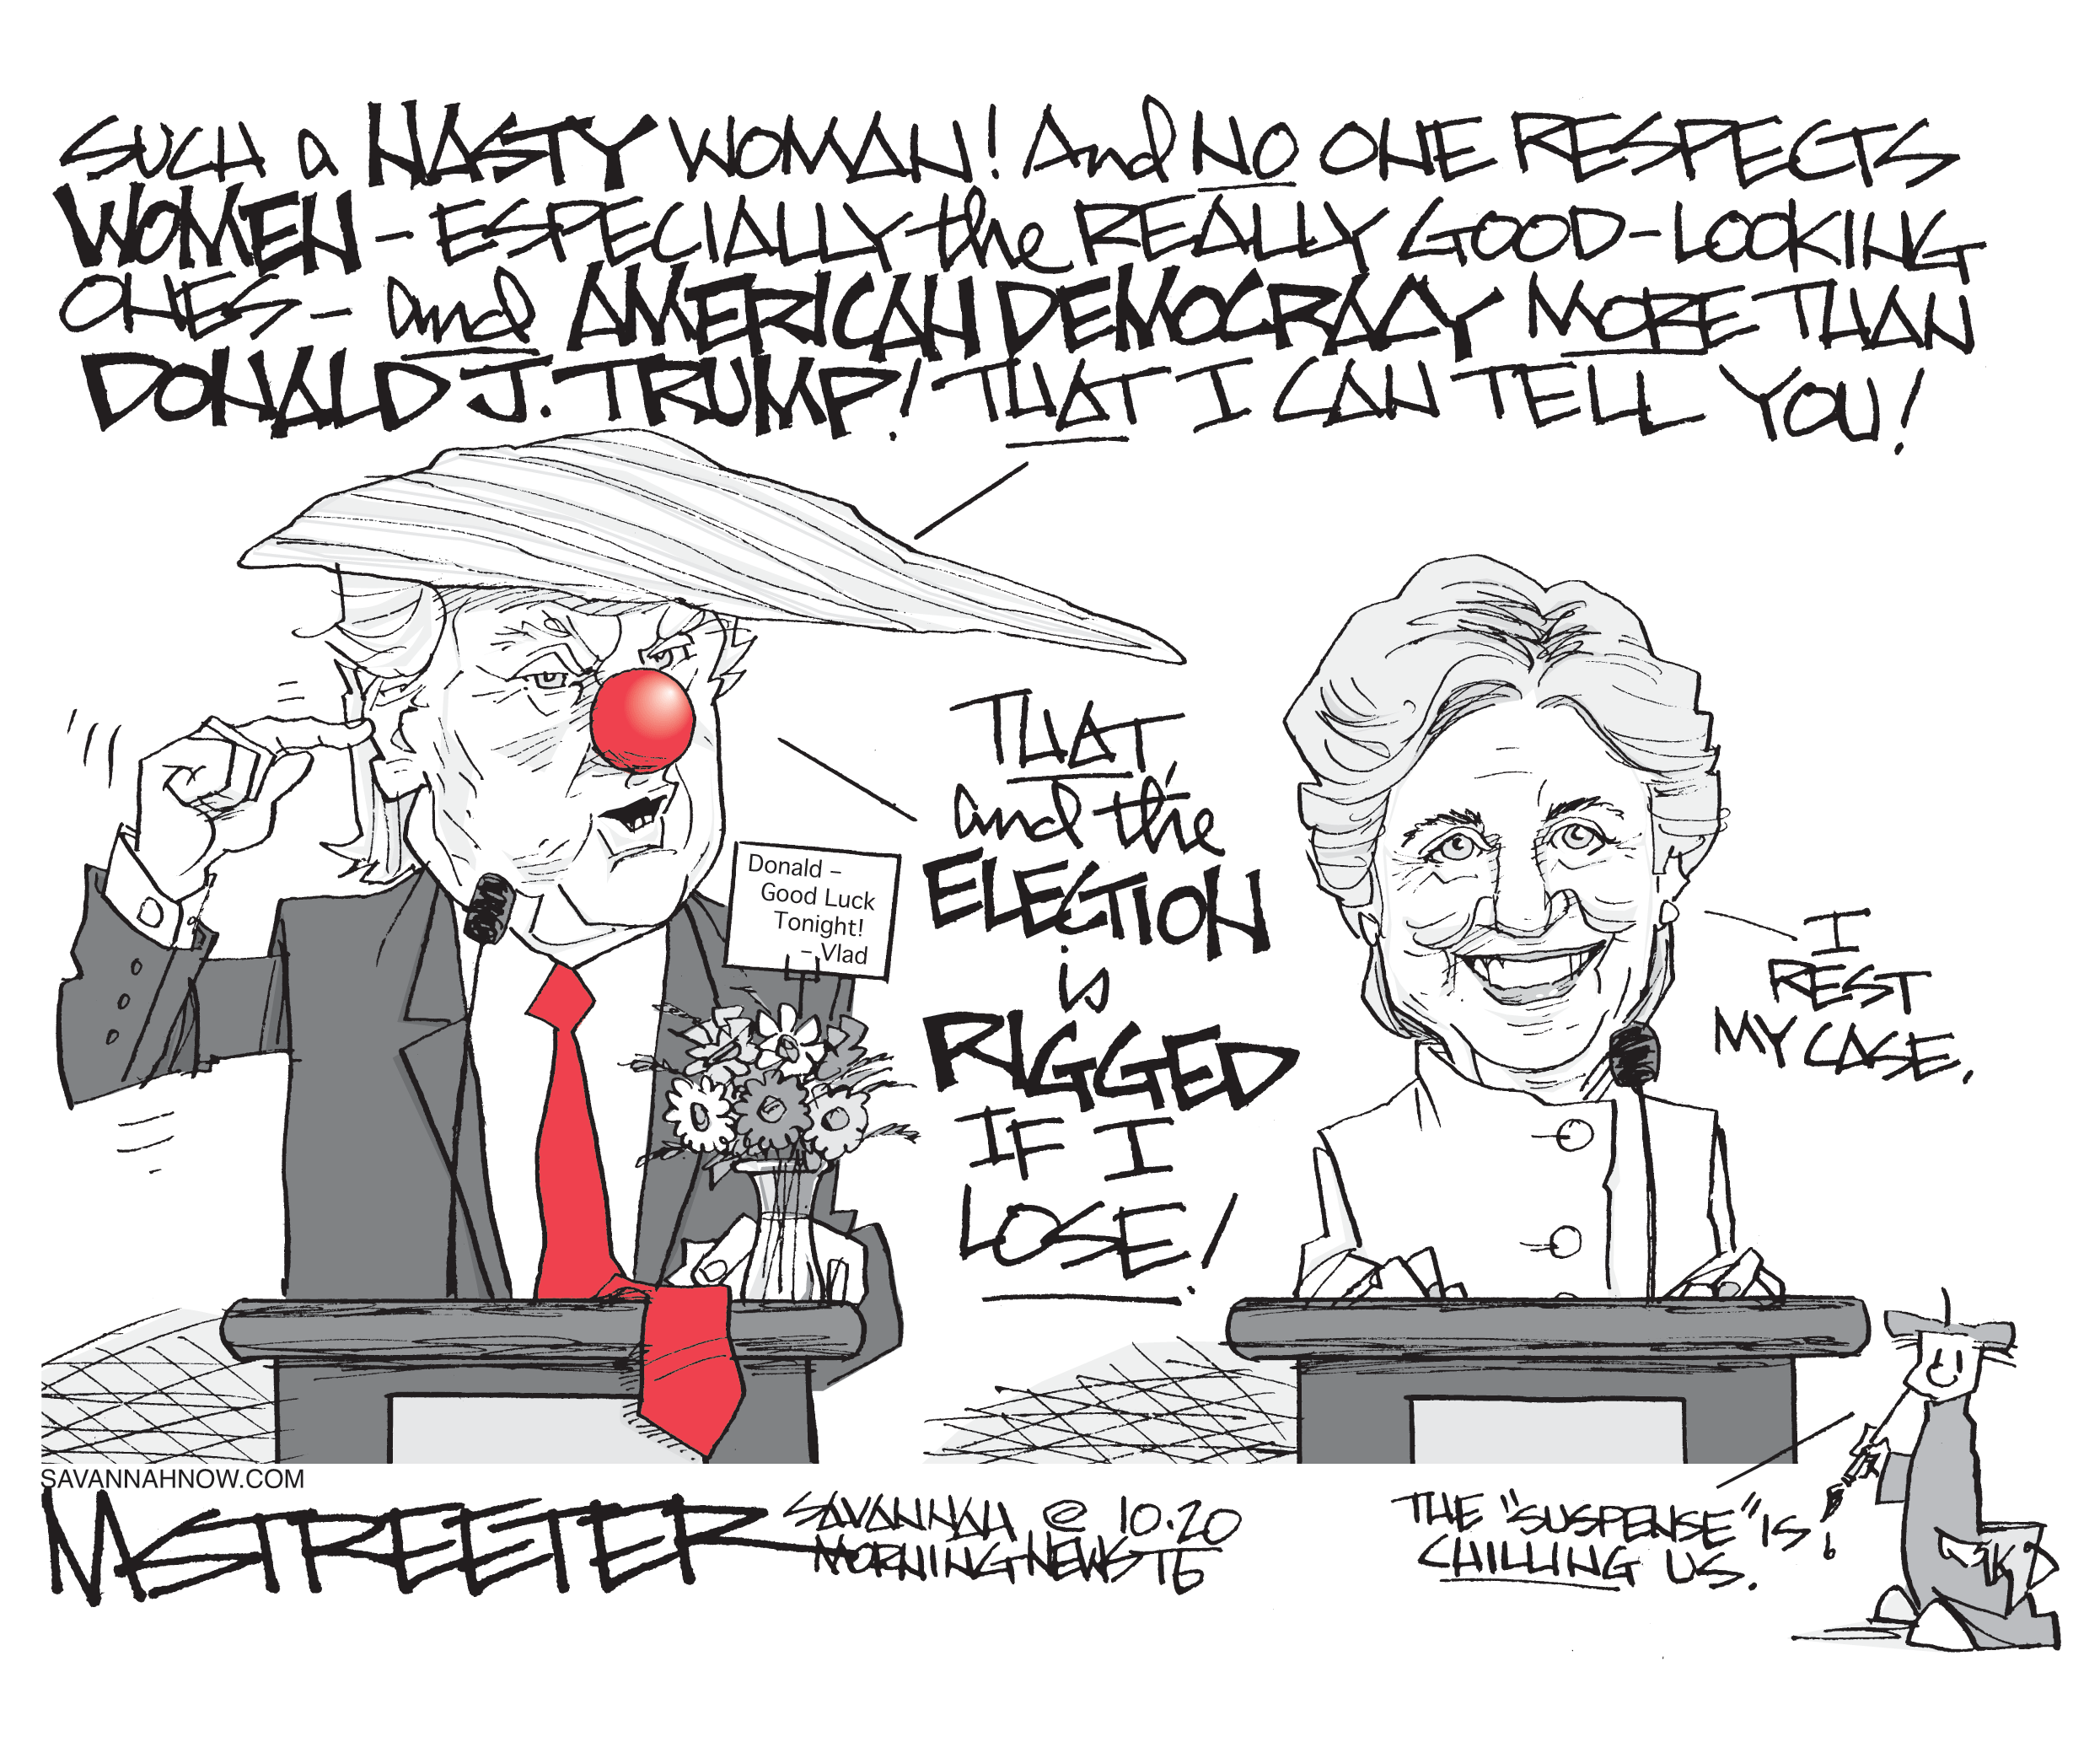 SUCH a NASTY WOMAN! And NO ONE RESPECTS
WOMEN – ESPECIALLY the REALLY GOOD-LOOKING
ONES – and AMERICAN DEMOCRACY MORE THAN
DONALD J. TRUMP! THAT I CAN TELL YOU!
THAT,
and the
ELECTION
is
RIGGED
IF I
LOSE!
Donald –
Good Luck
Tonight!
– Vlad
I
REST
MY CASE.
THE "SUSPENSE" IS
CHILLING US.
SAVANNAHNOW.COM
MSTREETER
SAVANNAH © 10.20
MORNING NEWS 16